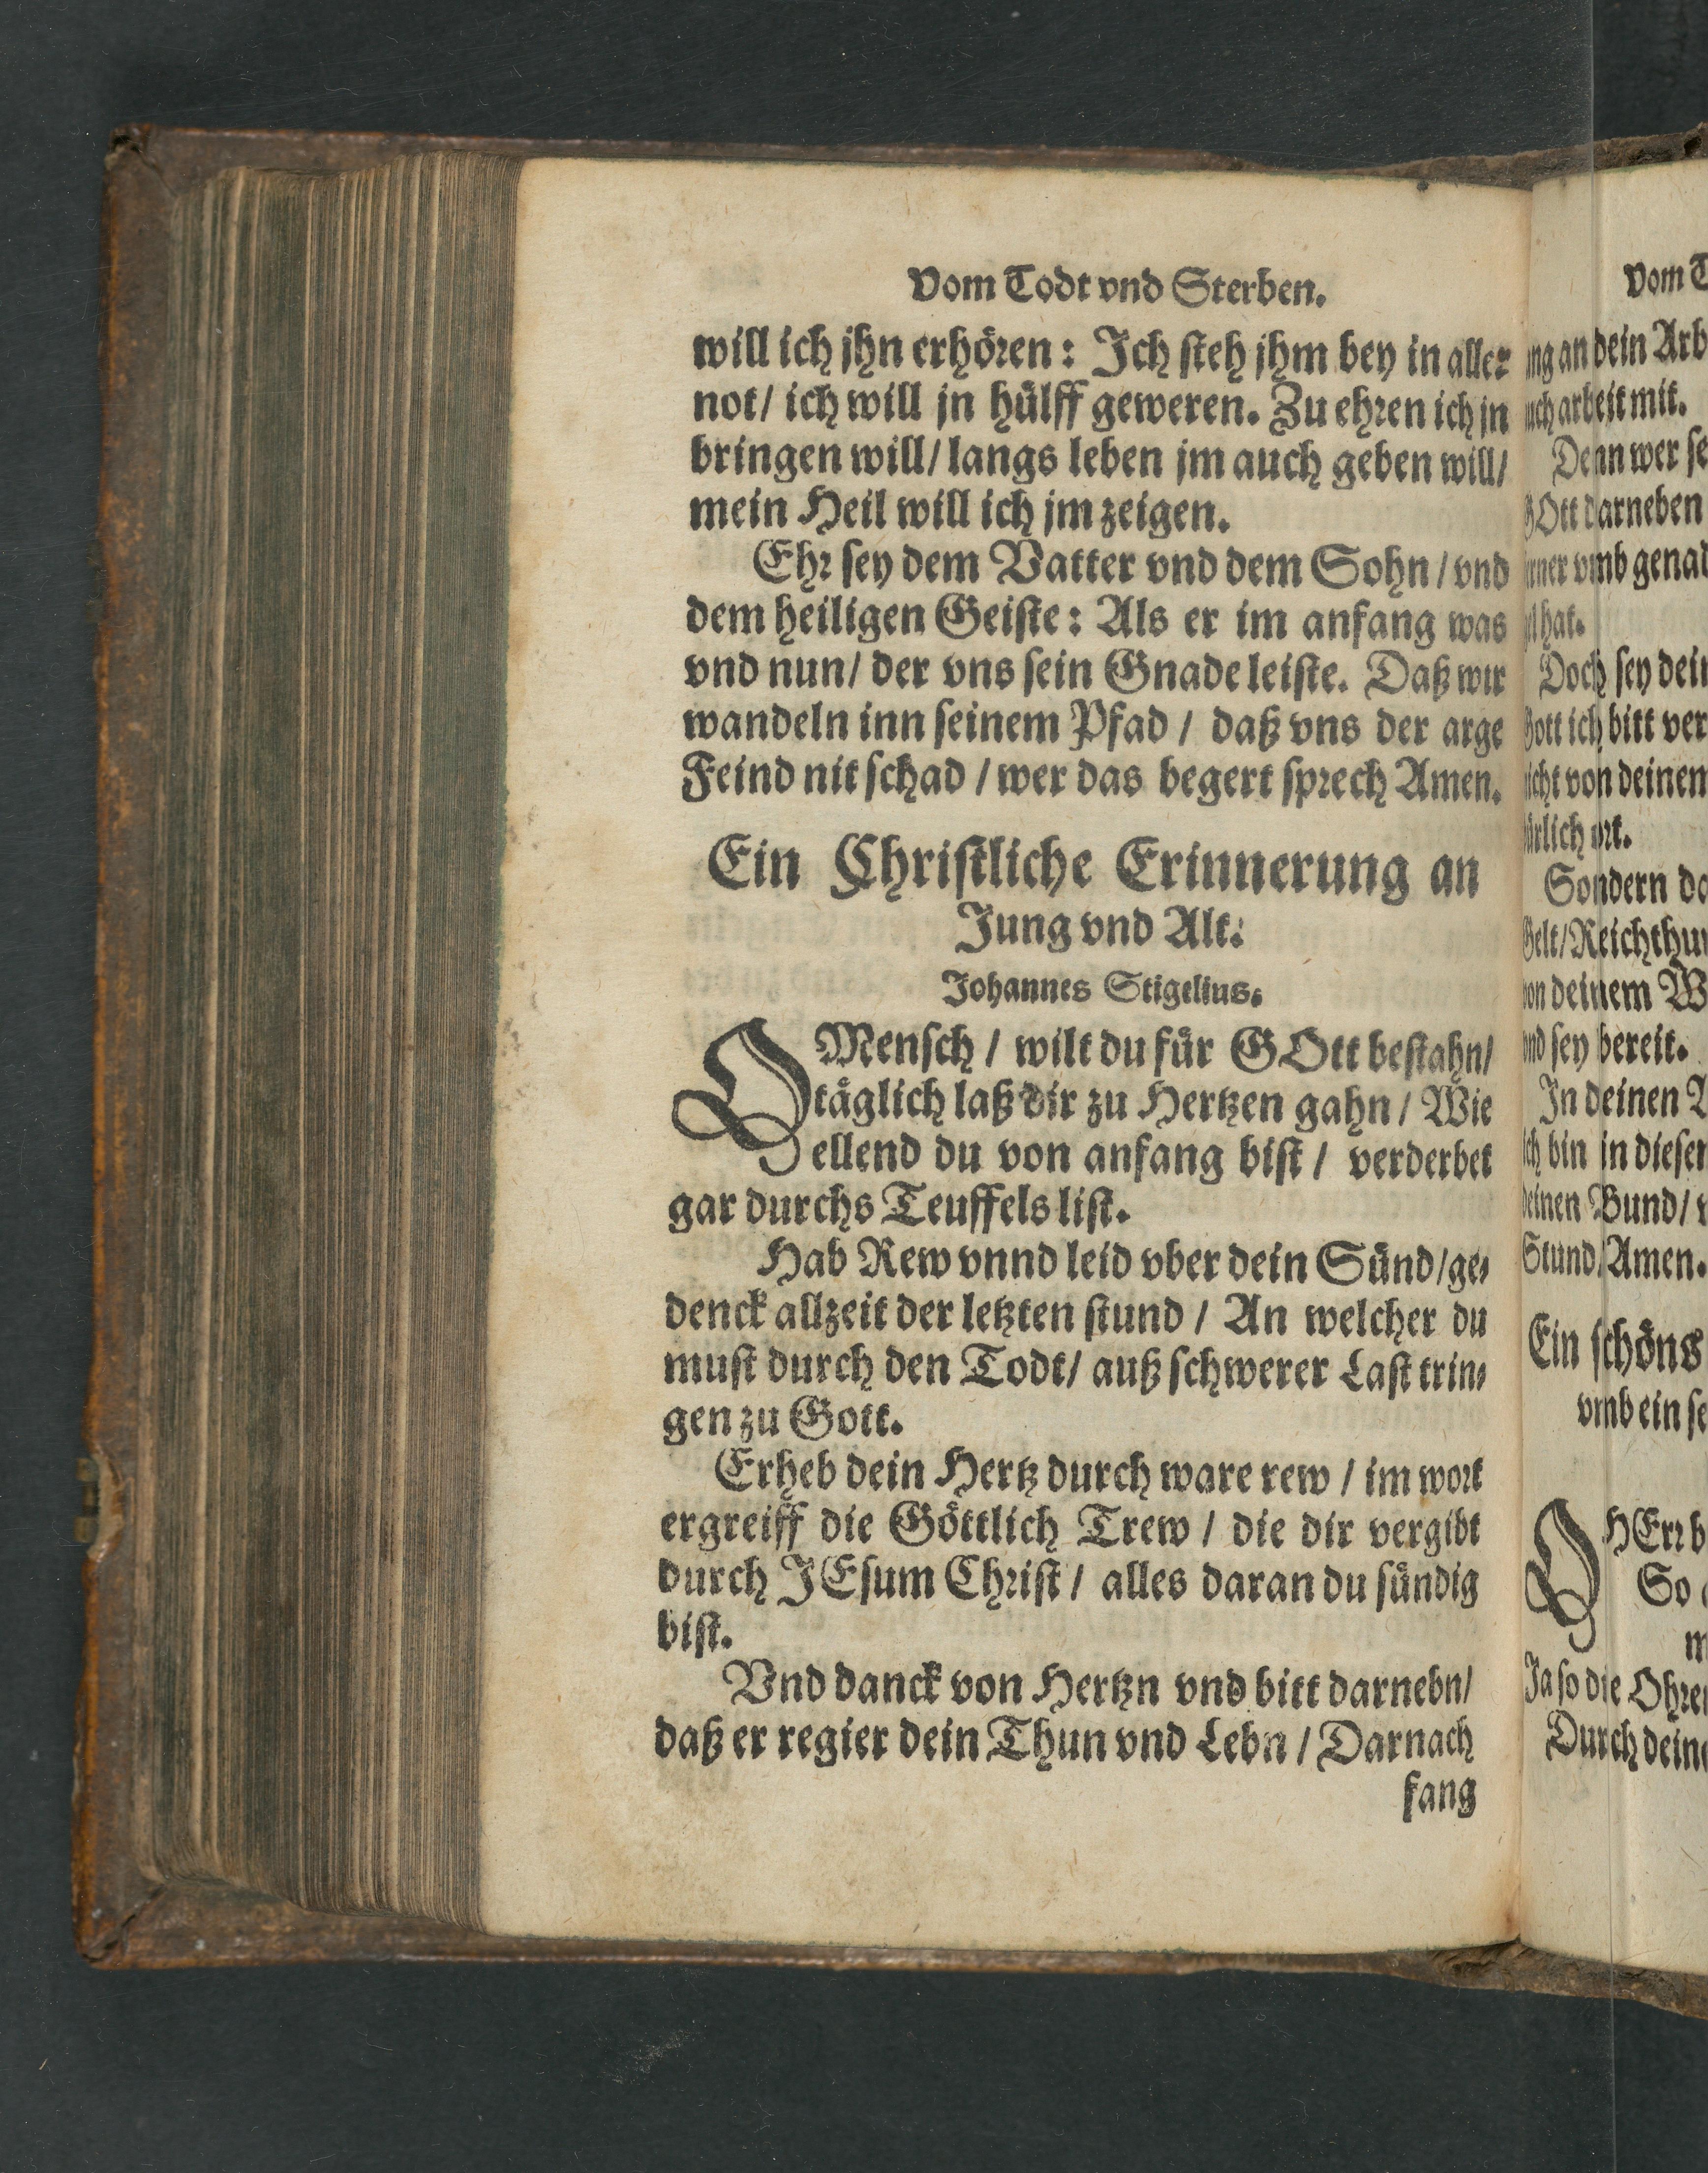 Vom Todt vnd Sterben.
will ich jhn erhören: Ich steh jhm bey in aller
not/ ich will jn hülff geweren. Zu ehren ich jn
bringen will/ langs leben jm auch geben will/
mein Heil will ich jm zeigen.
Ehr sey dem Vatter vnd dem Sohn / vnd
dem heiligen Geiste: Als er im anfang was
vnd nun/ der vns sein Gnade leiste. Daß wir
wandeln inn seinem Pfad / daß vns der arge
Feind nit schad / wer das begert sprech Amen.
Ein Christliche Erinnerung an
Jung vnd Alt.
Johannes Stigelius.
O Mensch / wilt du für GOtt bestahn/
täglich laß dir zu Hertzen gahn / Wie
ellend du von anfang bist / verderbet
gar durchs Teuffels list.
Hab Rew vnnd leid vber dein Sünd/ge-
denck allzeit der letzten stund / An welcher du
must durch den Todt/ auß schwerer Last trin-
gen zu Gott.
Erheb dein Hertz durch ware rew / im wort
ergreiff die Göttlich Trew / die dir vergibt
durch JEsum Christ / alles daran du sündig
bist.
Vnd danck von Hertzn vnd bitt darnebn/
daß er regier dein Thun vnd Lebn / Darnach
fang
Vom
an dein
arbeit mit.
Denn wer
GOtt darneben
vmb
hat.
Doch sey
Gott ich bitt
von deinem
Sondern
Gelt/
deinem
sey bereit.
In deinen
bin in
Bund/
Stund/Amen.
Ein schöns
vmb ein
O HErr
So
Ja so die
Durch